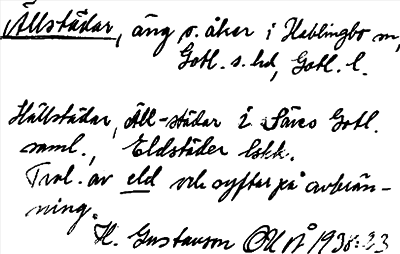 Ällstädar, äng o. åker i Hablingbo sn,
Gotl. s. hd, Gotl. l.
Hällstädar, Äll-städar i Säves Gotl.
saml., Eldstäder lskk.
Trol. av eld och syftar på avbrän-
ning.
H. Gustavson OUÅ 1938:23